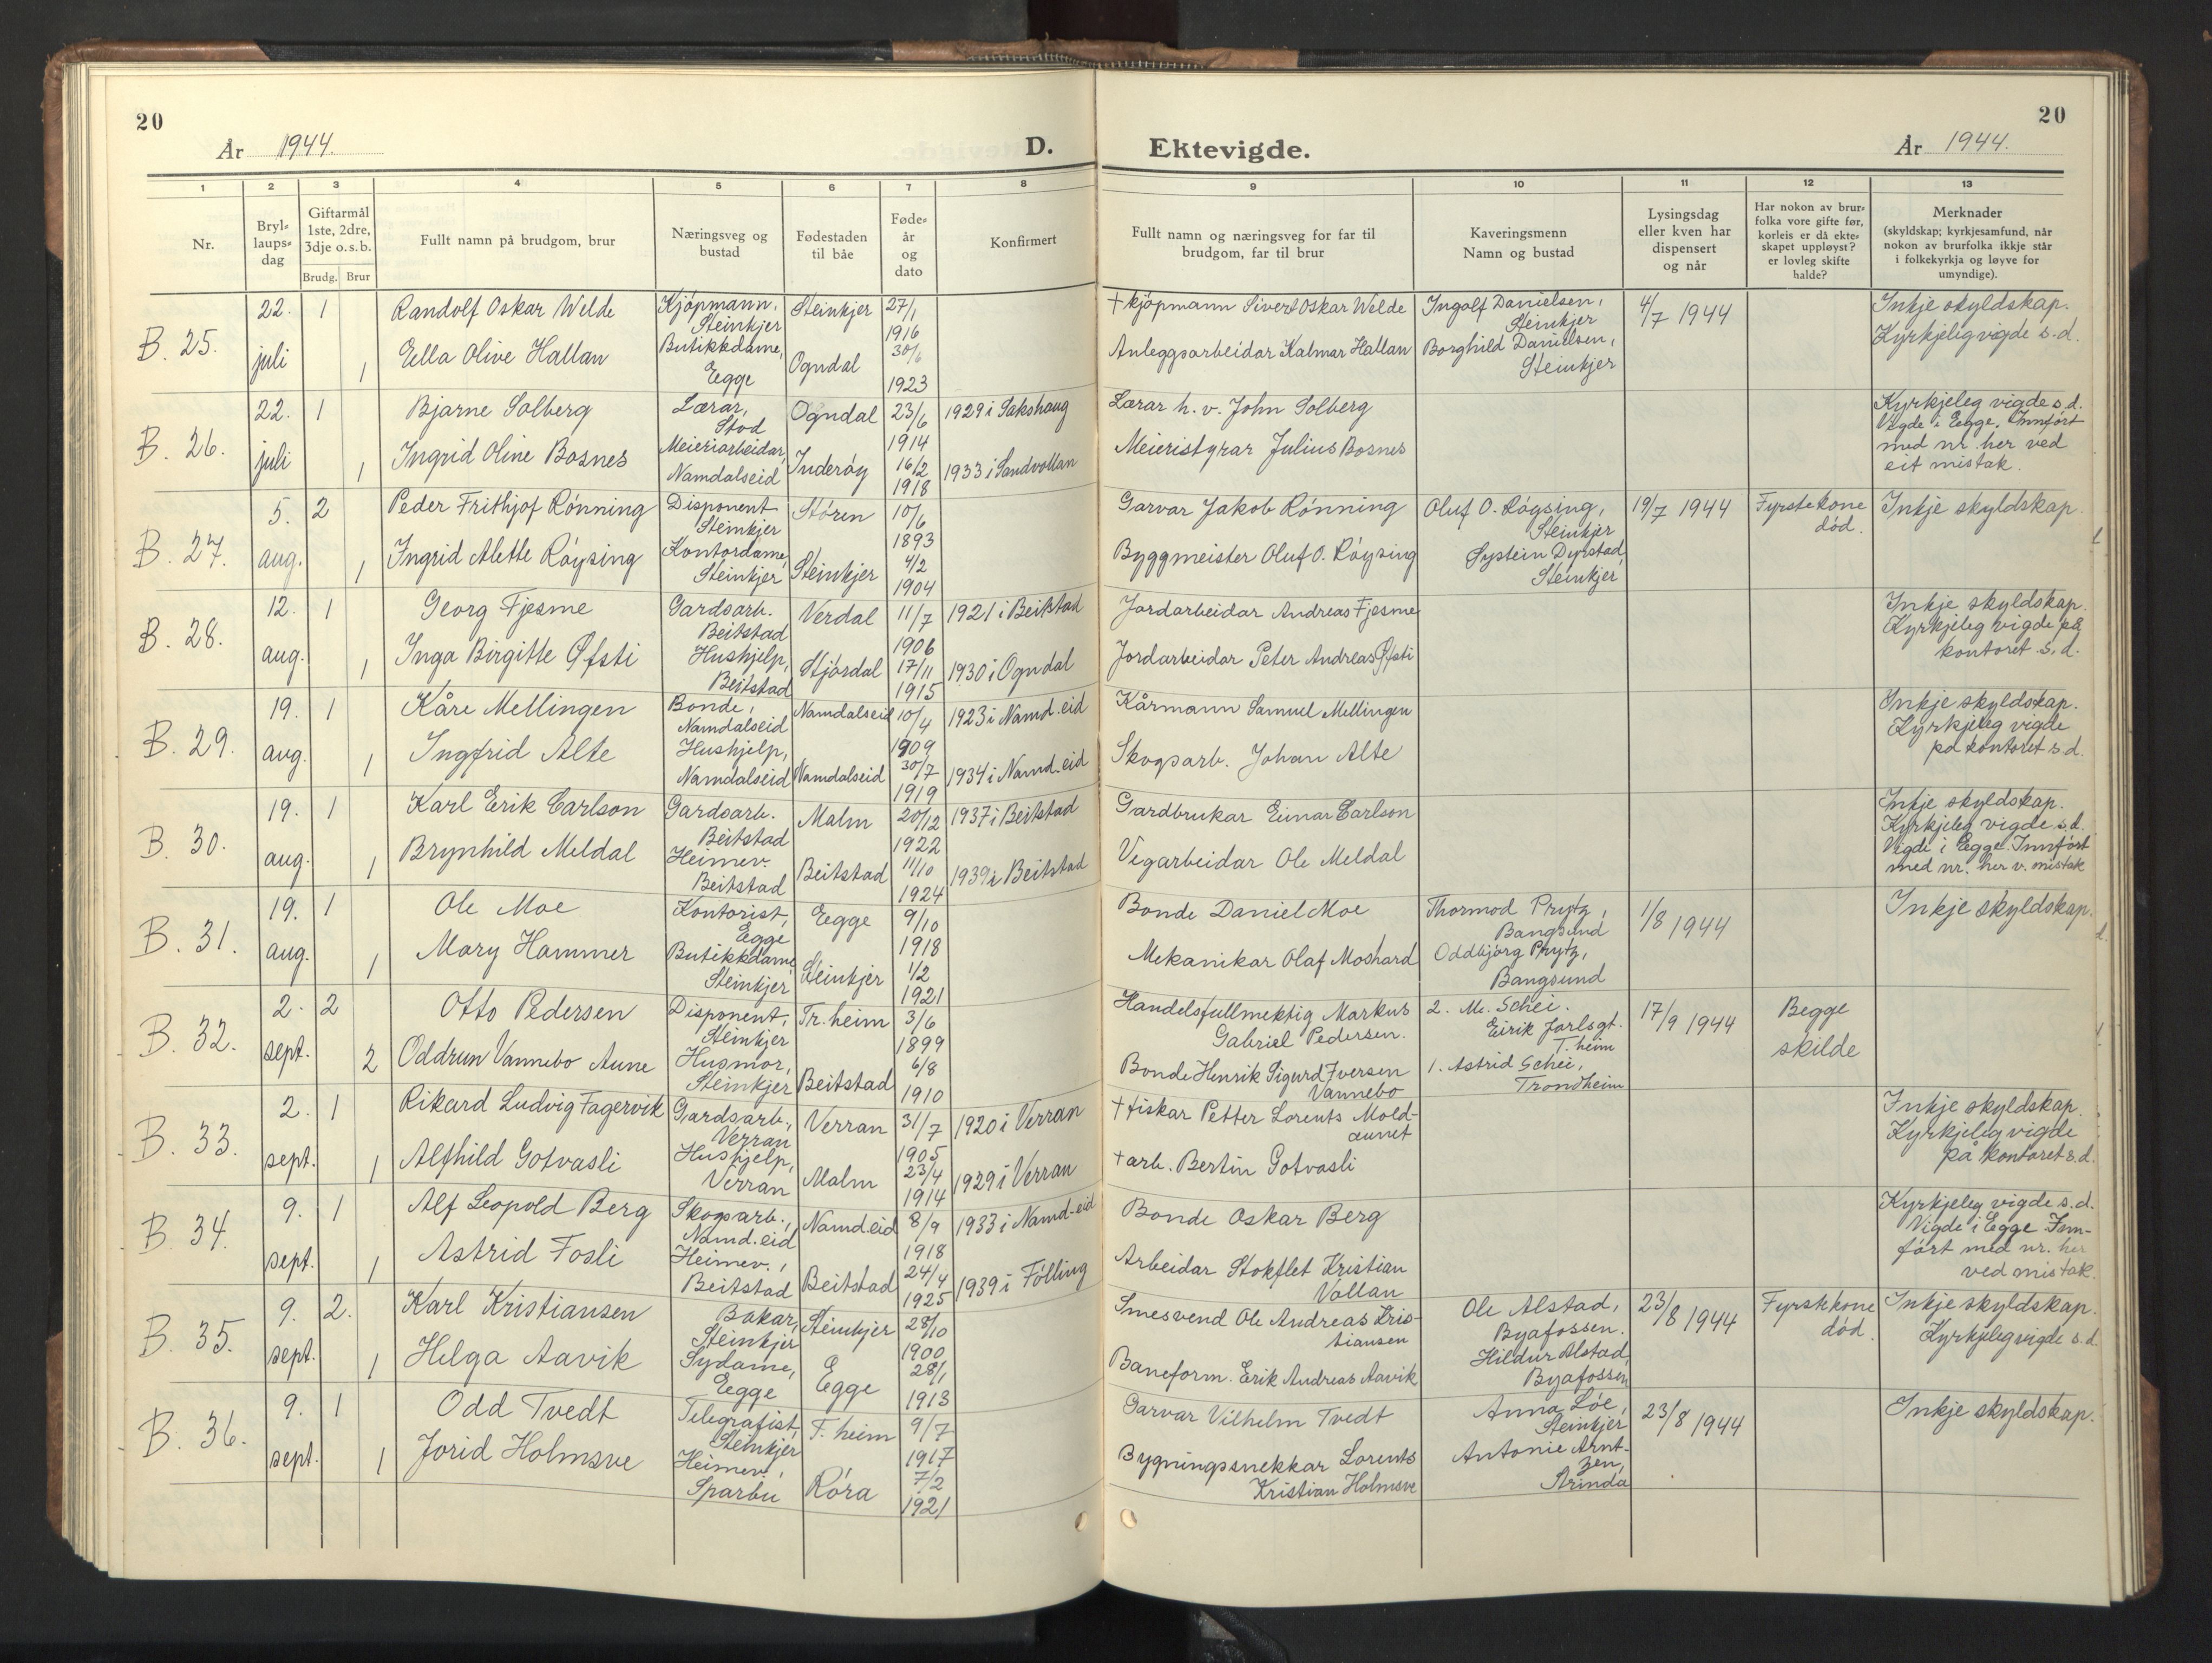 20
År 1944.
D.
Ektevigde.
År 1944.
20
1 2 3 4 5 6 7 8 9 10 11 12 13
Nr.
Bryl-
laups-
dag
Giftarmål
1ste, 2dre,
3dje o.s.b.
Brudg. Brur
Fullt namn på brudgom, brur
Næringsveg og
bustad
Fødestaden
til båe
Føde-
år
og
dato
Konfirmert
Fullt namn og næringsveg for far til
brudgom, far til brur
Kaveringsmenn
Namn og bustad
Lysingsdag
eller kven har
dispensert
og når
Har nokon av brur-
folka vore gifte før,
korleis er då ekte-
skapet uppløyst?
er lovleg skifte
halde?
Merknader
(skyldskap; kyrkjesamfund, når
nokon av brurfolka ikkje står
i folkekyrkja og løyve for
umyndige).
B. 25.
22. juli
1
Randolf Oskar Welde
Kjøpmann,
Steinkjer
Steinkjer
27/1
1916
+ kjøpmann Sivert Oskar Welde
Ingolf Danielsen,
Steinkjer
4/7 1944
Inkje skyldskap.
Kyrkjeleg vigde s.d.
1
Eella Olive Hallan
Butikkdame,
Egge
Ogndal
30/6
1923
Anleggsarbeidar Kalmar Hallan
Borghild Danielsen,
Steinkjer
B. 26.
22. juli
1
Bjarne Solberg
Lærar,
Stod
Ogndal
23/6
1914
1929 i Sakshaug
Lærar h. v. John Solberg
Kyrkjeleg vigde s.d.
Vigde i Egge. Innført
med nr. her ved
eit mistak.
1
Ingrid Oline Bosnes
Meieriarbeidar,
Namdalseid
Inderøy
16/2
1918
1933 i Sandvollan
Meieristyrar Julius Bosnes
B. 27.
5. aug.
2
Peder Frithjof Rønning
Disponent
Steinkjer
Støren
10/6
1893
Garvar Jakob Rønning
Oluf O. Røysing,
Steinkjer
19/7 1944
Fyrste kone
død.
Inkje skyldskap
1
Ingrid Alette Røysing
Kontordame,
Steinkjer
Steinkjer
4/2
1904
Byggmeister Oluf O. Røysing
Øystein Dyrstad,
Steinkjer
B. 28.
12. aug.
1
Georg Fjesme
Gardsarb.
Beitstad
Verdal
11/7
1906
1921 i Beitstad
Jordarbeidar Andreas Fjesme
Inkje skyldskap.
Kyrkjeleg vigde på
kontoret s.d.
1
Inga Birgitte Øfsti
Hushjelp,
Beitstad
Stjørdal
17/11
1915
1930 i Ogndal
Jordarbeidar Peter Andreas Øfsti
B. 29.
19. aug.
1
Kåre Mellingen
Bonde,
Namdalseid
Namdalseid
10/4
1909
1923 i Namd.eid
Kårmann Samuel Mellingen
Inkje skyldskap.
Kyrkjeleg vigde
på kontoret s.d.
1
Ingfrid Alte
Hushjelp,
Namdalseid
Namdalseid
30/7
1919
1934 i Namd.eid
Skogsarb. Johan Alte
B. 30.
19. aug.
1
Karl Erik Carlson
Gardsarb.
Beitstad
Malm
20/12
1922
1937 i Beitstad
Gardbrukar Einar Carlson
Inkje skyldskap.
Kyrkjeleg vigde s.d.
Vigde i Egge. Innført
med nr. her v. mistak
1
Brynhild Meldal
Heimev.
Beitstad
Beitstad
11/10
1924
1939 i Beitstad
Vegarbeidar Ole Meldal
B. 31.
19. aug.
1
Ole Moe
Kontorist,
Egge
Egge
9/10
1918
Bonde Daniel Moe
Thormod Prytz,
Bangsund
1/8 1944
Inkje skyldskap.
1
Mary Hammer
Butikkdame
Steinkjer
Steinkjer
1/2
1921
Mekanikar Olaf Moshard
Oddbjørg Prytz,
Bangsund
B. 32.
2. sept.
2
Otto Pedersen
Disponent,
Steinkjer
Tr.heim
3/6
1899
Handelsfullmektig Markus
Gabriel Pedersen.
2. M. Schei.
Eirik Jarlsgt.
T.heim
17/9 1944
Begge
skilde
2
Oddrun Vannebo Aune
Husmor,
Steinkjer
Beitstad
6/8
1910
Bonde Henrik Sigurd Iversen
Vannebo
1. Astrid Schei,
Trondheim
B. 33.
2. sept.
1
Rikard Ludvig Fagervik
Gardsarb.,
Verran
Verran
31/7
1905
1920 i Verran
+ fiskar Petter Lorents Mold-
aunet
Inkje skyldskap.
Kyrkjeleg vigde
på kontoret s.d.
1
Alfhild Gotvasli
Hushjelp,
Verran
Malm
23/4
1914
1929 i Verran
+ arb. Bertin Gotvasli
B. 34.
9. sept.
1
Alf Leopold Berg
Skogsarb.,
Namd.eid
Namd.eid
8/9
1918
1933 i Namd-eid
Bonde Oskar Berg
Kyrkjeleg vigde s.d.
Vigde i Egge Inn-
ført med nr. her
ved mistak.
1
Astrid Fosli
Heimev.,
Beitstad
Beitstad
24/4
1925
1939 i Følling
Arbeidar Stokflet Kristian
Vollan
B. 35.
9. sept.
2.
Karl Kristiansen
Bakar,
Steinkjer
Steinkjer
28/10
1900
Smesvend Ole Andreas Kris-
tiansen
Ole Alstad,
Byafossen.
23/8 1944
Fyrste kone
død.
Inkje skyldskap.
Kyrkjeleg vigde s.d
1
Helga Aavik
Sydame,
Egge
Egge
28/1
1913
Baneform. Erik Andreas Aavik
Hildur Alstad,
Byafossen
B. 36.
9. sept.
1
Odd Tvedt
Telegrafist,
Steinkjer
T.heim
9/7
1917
Garvar Vilhelm Tvedt
Anna Løe,
Steinkjer
23/8 1944
Inkje skyldskap.
1
Jorid Holmsve
Heimev.,
Sparbu
Røra
7/2
1921
Bygningssnekkar Lorents
Kristian Holmsve
Antonie Arnt-
zen,
Strinda